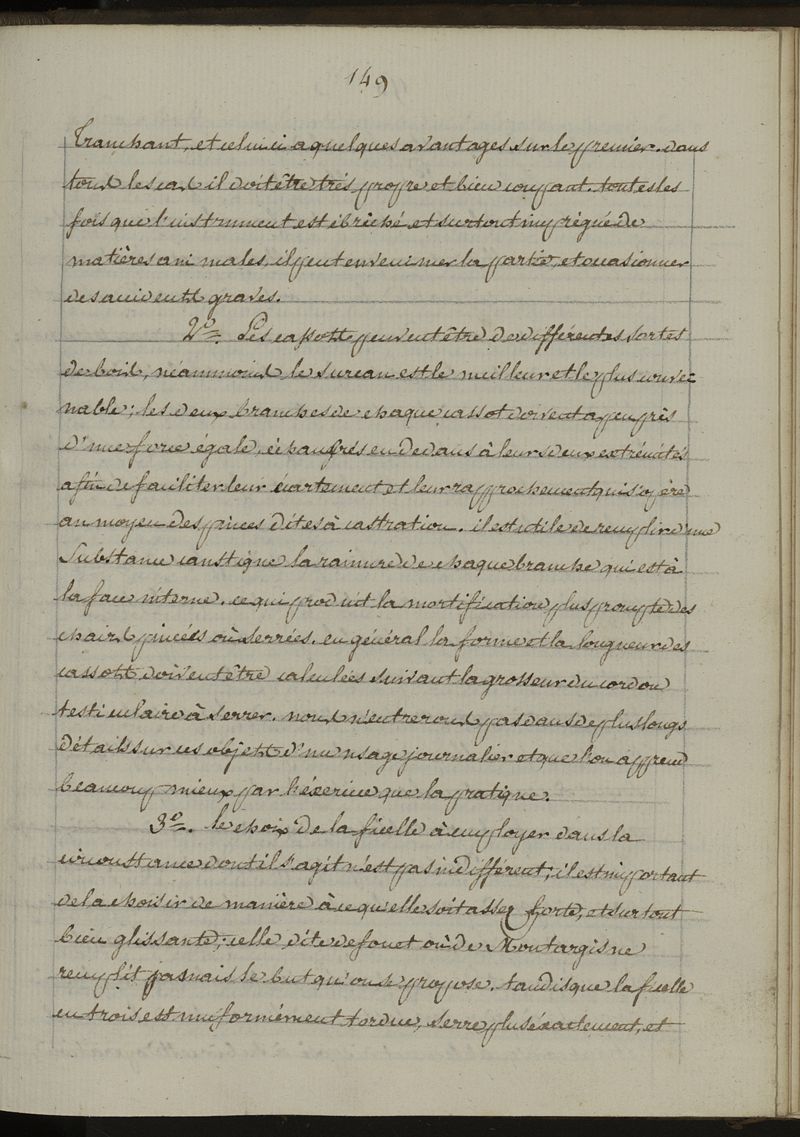 149
tranchant, et celui ci a quelques avantages sur le premier. dans
tous les cas il doit être trés propre et bien coupant. toutes les
fois que l'instrument est ébrêché et surtout imprégné de
matières animales, il peut envenimer la partie, et ocasionner
des accidentt graves.
2º. Les cassott peuvent être de différentes sortes
de bois, néammoins le sureau est le meilleur et le plus conve
nable; les deux branches de chaque cassot doivent a peu près
d'une force égale, échanfrés en dedans à leurs deux extrémités
afin de faciliter leur écartement et leur rapprochement qui s'opère
au moyen des pinces dites à castration. il est utile de remplir d'une
Substance caustique la rainure de chaque branche qui est à
la face interne. ce qui produit la mortification plus prompte des
chairs pincées où serrées. en général la forme et la longueur des
cassott doivent être calculées suivant la grosseur du cordon
testiculaire à serrer. nous n'entrerons pas dans de plus longs
détails sur ces objett d'un usage journalier et que l'on apprend
beaucoup mieux par l'éxercice que la pratique.
3º. le choix de la ficelle à employer dans la
circonstance dont il s'agit n'est pas indifférent; il est important
de la choisir de manière à ce qu'elle soit assez forte, et surtout
bien glissante; celle dite de fouet où de Montargis ne
remplit jamais le but qu'on se propose. tandis que la ficelle
en trois est uniformément tordue, serre plus éxactement, et